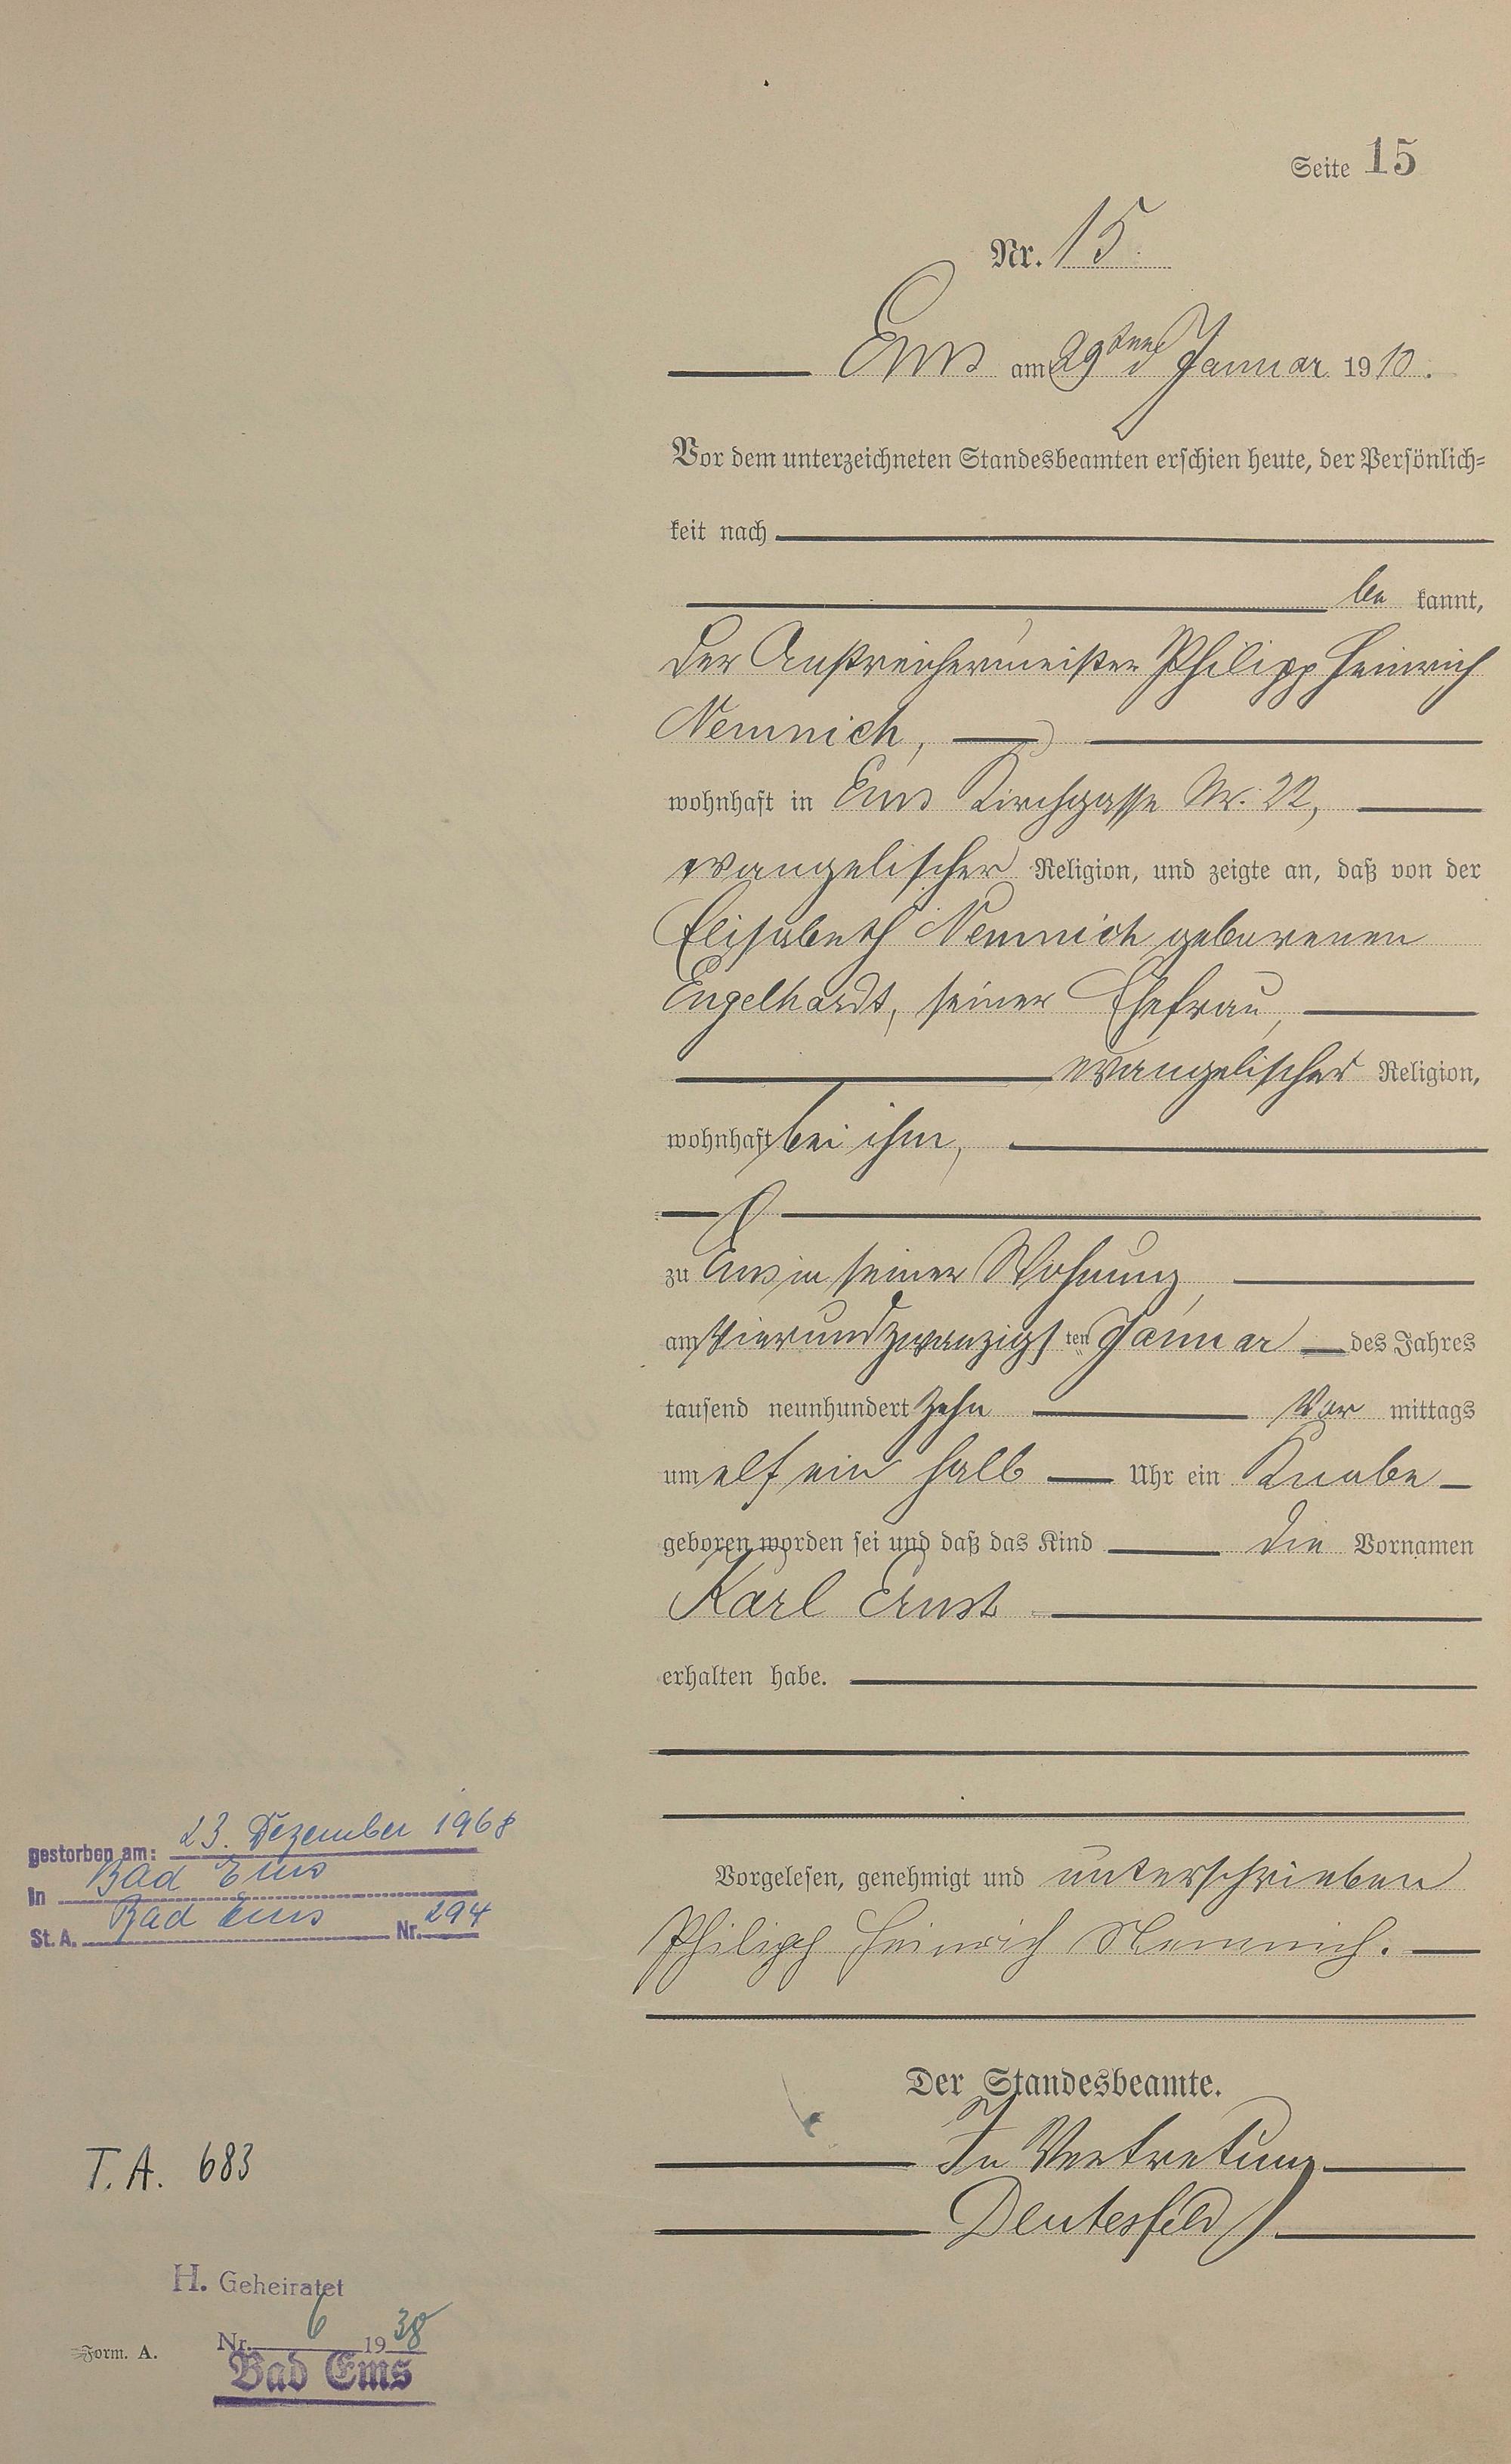 Seite 15
Nr. 15.
Ems am 29ten Januar 1910.
Vor dem unterzeichneten Standesbeamten erschien heute, der Persönlich-
keit nach
be kannt,
der Anstreichermeister Philipp Heinrich
Nemnich,
wohnhaft in Ems Kirchgasse Nr. 22,
evangelischer Religion, und zeigte an, daß von der
Elisabeth Nemnich geborenen
Engelhardt, seiner Ehefrau,
evangelischer Religion,
wohnhaft bei ihm,
zu Ems in seiner Wohnung,
am vierundzwanzigsten Januar des Jahres
tausend neunhundert zehn Vor mittags
um elf ein halb Uhr ein Knabe
geboren worden sei und daß das Kind die Vornamen
Karl Ernst
erhalten habe.
Vorgelesen, genehmigt und unterschrieben
Philipp Heinrich Nemnich.
Der Standesbeamte.
In Vertretung
Deutesfeld
gestorben am: 23. Dezember 1968
in Bad Ems
St. A. Bad Ems Nr. 294
T. A. 683
H. Geheiratet
Nr. 6 1938
Bad Ems
Form. A.